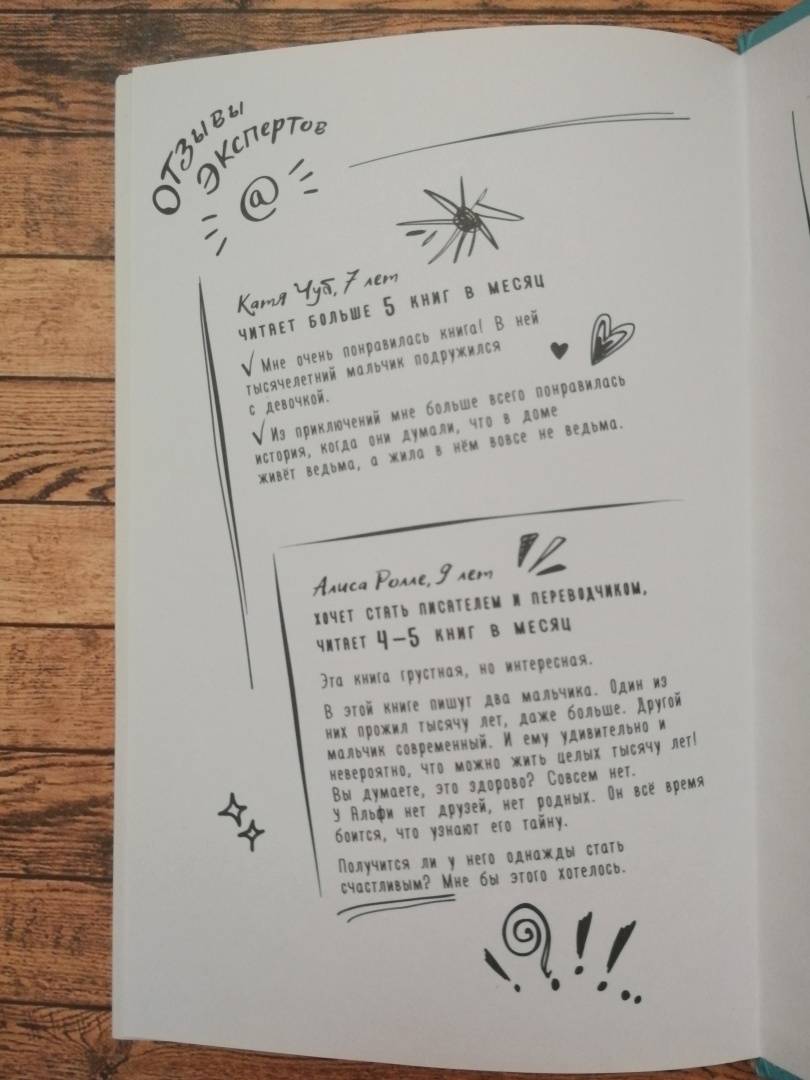 Отзывы
экспертов
@
Катя Чуб, 7 лет
читает больше 5 книг в месяц
✓ Мне очень понравилась книга! В ней
тысячелетний мальчик подружился
с девочкой.
✓ Из приключений мне больше всего понравилась
история, когда они думали, что в доме
живёт ведьма, а жила в нём вовсе не ведьма.
Алиса Ролле, 9 лет
хочет стать писателем и переводчиком,
читает 4–5 книг в месяц
Эта книга грустная, но интересная.
В этой книге пишут два мальчика. Один из
них прожил тысячу лет, даже больше. Другой
мальчик современный. И ему удивительно и
невероятно, что можно жить целых тысячу лет!
Вы думаете, это здорово? Совсем нет.
У Альфи нет друзей, нет родных. Он всё время
боится, что узнают его тайну.
Получится ли у него однажды стать
счастливым? Мне бы этого хотелось.